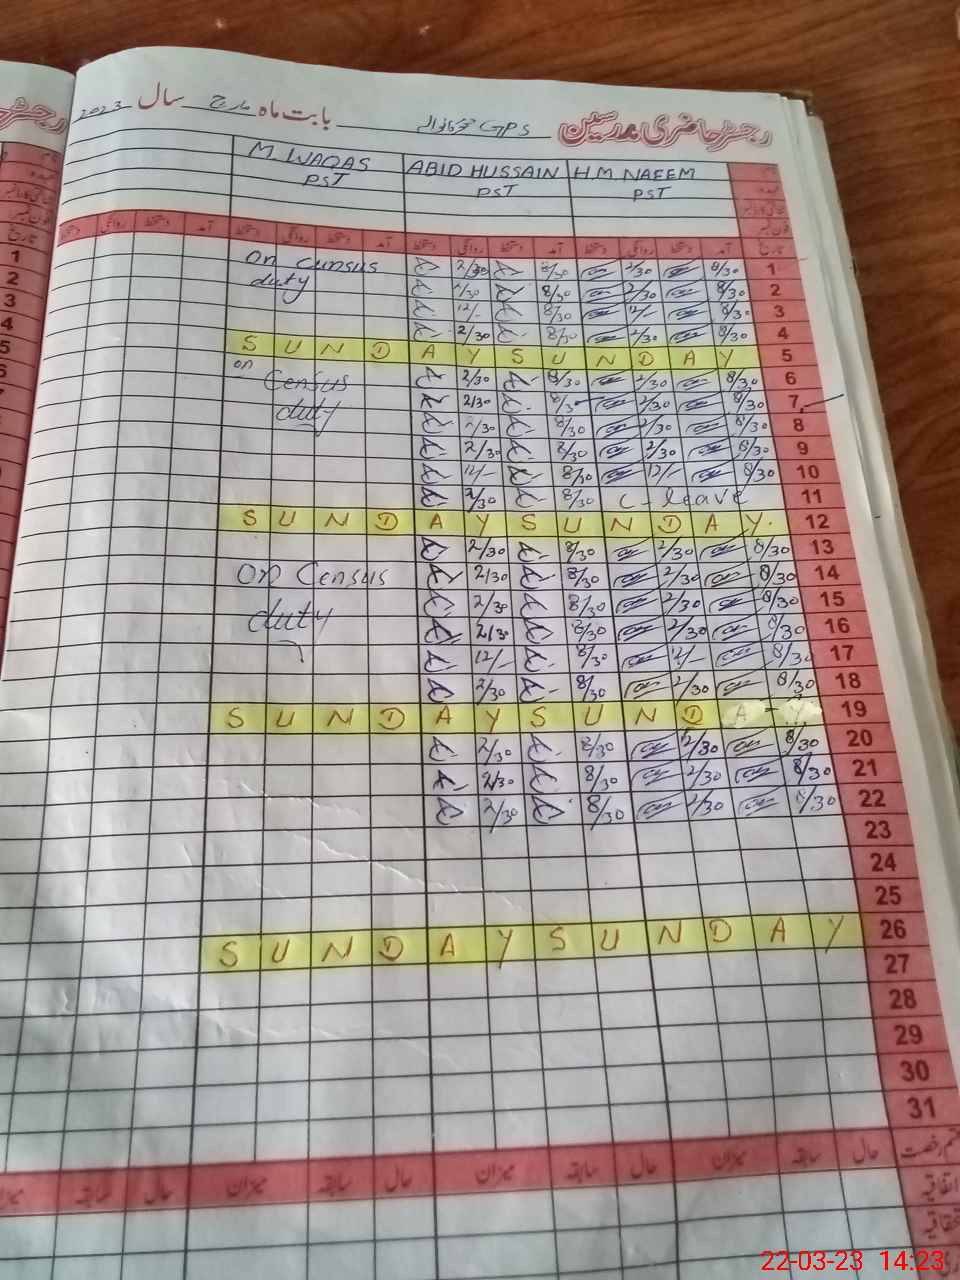 رجسٹر حاضری مدرسین GPS بابت ماہ مارچ سال 2023
M WAQAS ABID HUSSAIN H.M NAEEM
PST PST PST
تاریخ آمد دستخط روانگی دستخط آمد دستخط روانگی دستخط آمد دستخط روانگی دستخط آمد دستخط روانگی دستخط
On Census 2/30 8/30 2/30 8/30 1
duty 2/30 8/30 2/30 8/30 2
12/- 8/30 12/- 8/30 3
2/30 8/30 2/30 8/30 4
S U N D A Y S U N D A Y 5
on Census 2/30 8/30 2/30 8/30 6
duty 2/30 8/30 2/30 8/30 7
2/30 8/30 2/30 8/30 8
2/30 8/30 2/30 8/30 9
12/- 8/30 12/- 8/30 10
2/30 8/30 C-leave 11
S U N D A Y S U N D A Y. 12
2/30 8/30 2/30 8/30 13
On Census 2/30 8/30 2/30 8/30 14
duty 2/30 8/30 2/30 8/30 15
2/30 8/30 2/30 8/30 16
12/- 8/30 12/- 8/30 17
2/30 8/30 2/30 8/30 18
S U N D A Y S U N D A Y 19
2/30 8/30 2/30 8/30 20
2/30 8/30 2/30 8/30 21
2/30 8/30 2/30 8/30 22
23
24
25
S U N D A Y S U N D A Y 26
27
28
29
30
31
حال سابقہ میزان حال سابقہ میزان حال سابقہ میزان حال سابقہ
اتفاقیہ
22-03-23 14:23